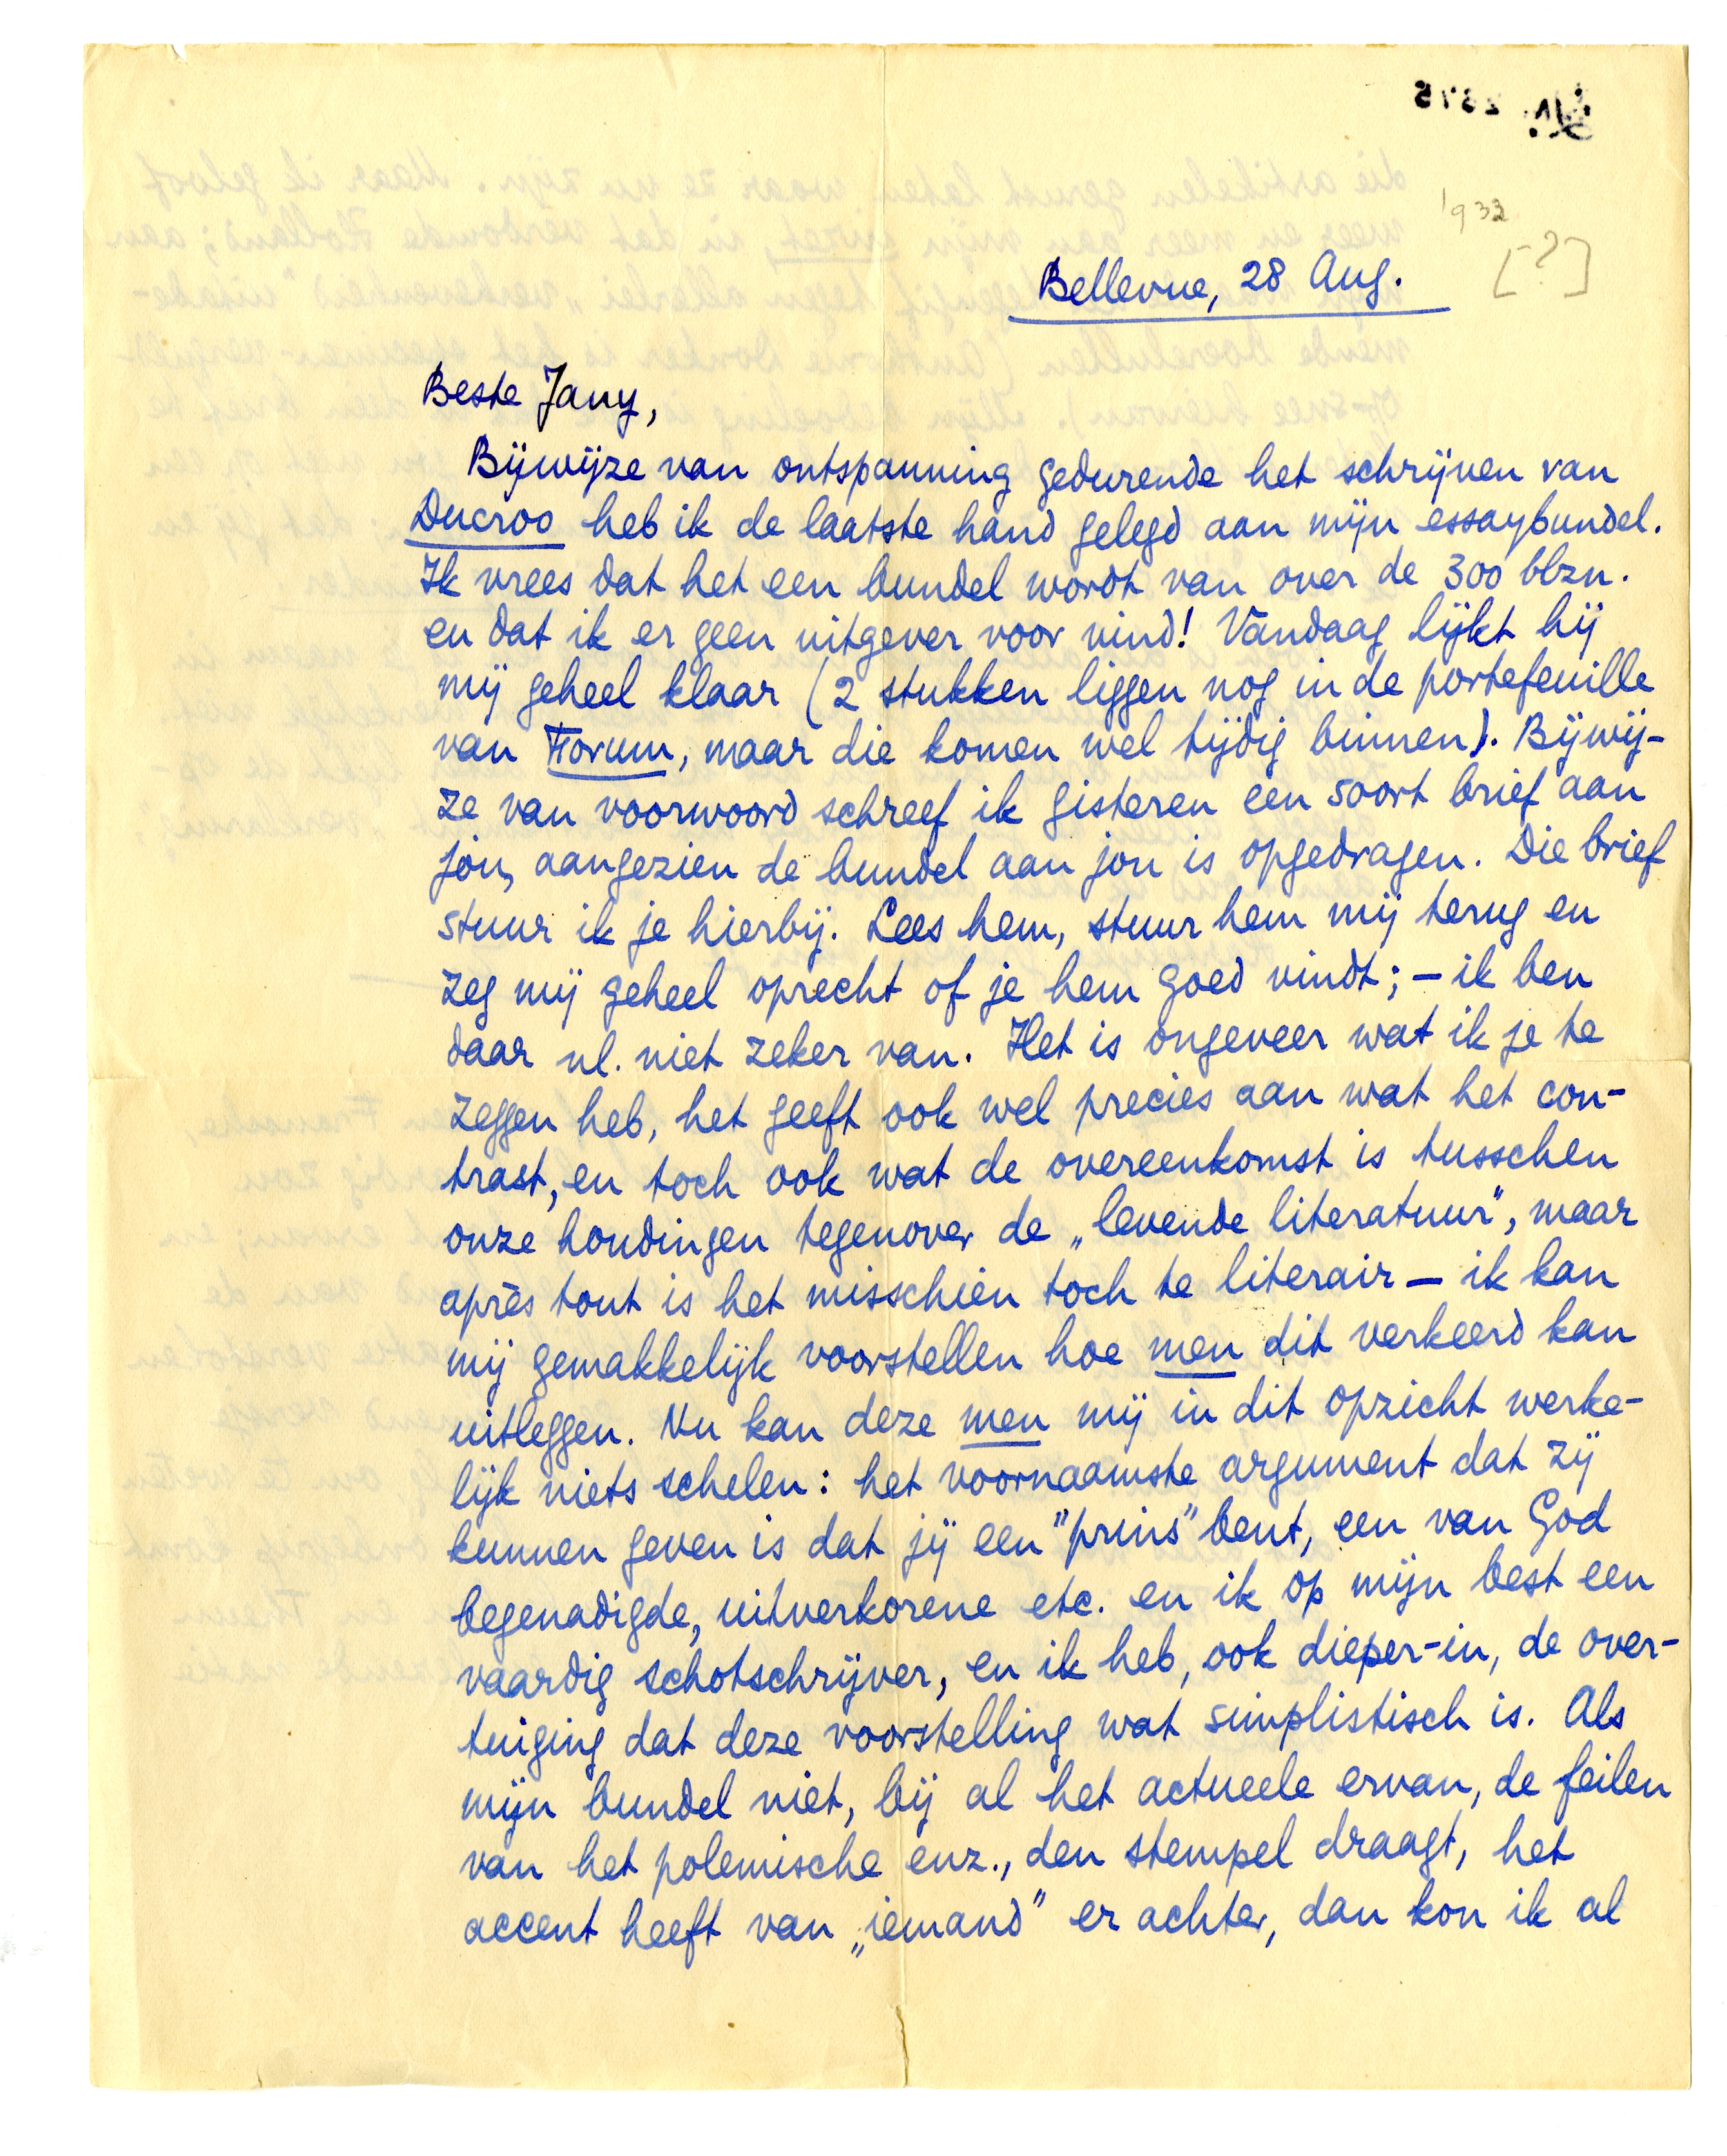 1933
[-?]
Bellevue, 28 Aug.
Beste Jany,
Bijwijze van ontspanning gedurende het schrijven van
Ducroo heb ik de laatste hand gelegd aan mijn essaybundel.
Ik vrees dat het een bundel wordt van over de 300 blzn.
en dat ik er geen uitgever voor vind! Vandaag lijkt hij
mij geheel klaar (2 stukken liggen nog in de portefeuille
van Forum, maar die komen wel tijdig binnen). Bijwij-
ze van voorwoord schreef ik gisteren een soort brief aan
jou, aangezien de bundel aan jou is opgedragen. Die brief
stuur ik je hierbij. Lees hem, stuur hem mij terug en
zeg mij geheel oprecht of je hem goed vindt; – ik ben
daar nl. niet zeker van. Het is ongeveer wat ik je te
zeggen heb, het geeft ook wel precies aan wat het con-
trast, en toch ook wat de overeenkomst is tusschen
onze houdingen tegenover de „levende literatuur", maar
après tout is het misschien toch te literair – ik kan
mij gemakkelijk voorstellen hoe men dit verkeerd kan
uitleggen. Nu kan deze men mij in dit opzicht werke-
lijk niets schelen: het voornaamste argument dat zij
kunnen geven is dat jij een "prins" bent, een van God
begenadigde, uitverkorene etc. en ik op mijn best een
vaardig schotschrijver, en ik heb, ook dieper-in, de over-
tuiging dat deze voorstelling wat simplistisch is. Als
mijn bundel niet, bij al het actueele ervan, de feilen
van het polemische enz., den stempel draagt, het
accent heeft van „iemand" er achter, dan kon ik al